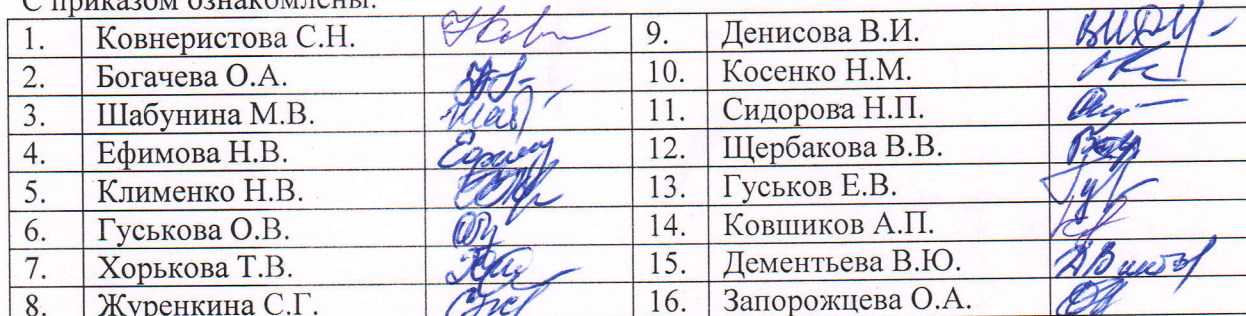 С приказом ознакомлены:
1. Ковнеристова С.Н. 9. Денисова В.И.
2. Богачева О.А. 10. Косенко Н.М.
3. Шабунина М.В. 11. Сидорова Н.П.
4. Ефимова Н.В. 12. Щербакова В.В.
5. Клименко Н.В. 13. Гуськов Е.В.
6. Гуськова О.В. 14. Ковшиков А.П.
7. Хорькова Т.В. 15. Дементьева В.Ю.
8. Журенкина С.Г. 16. Запорожцева О.А.